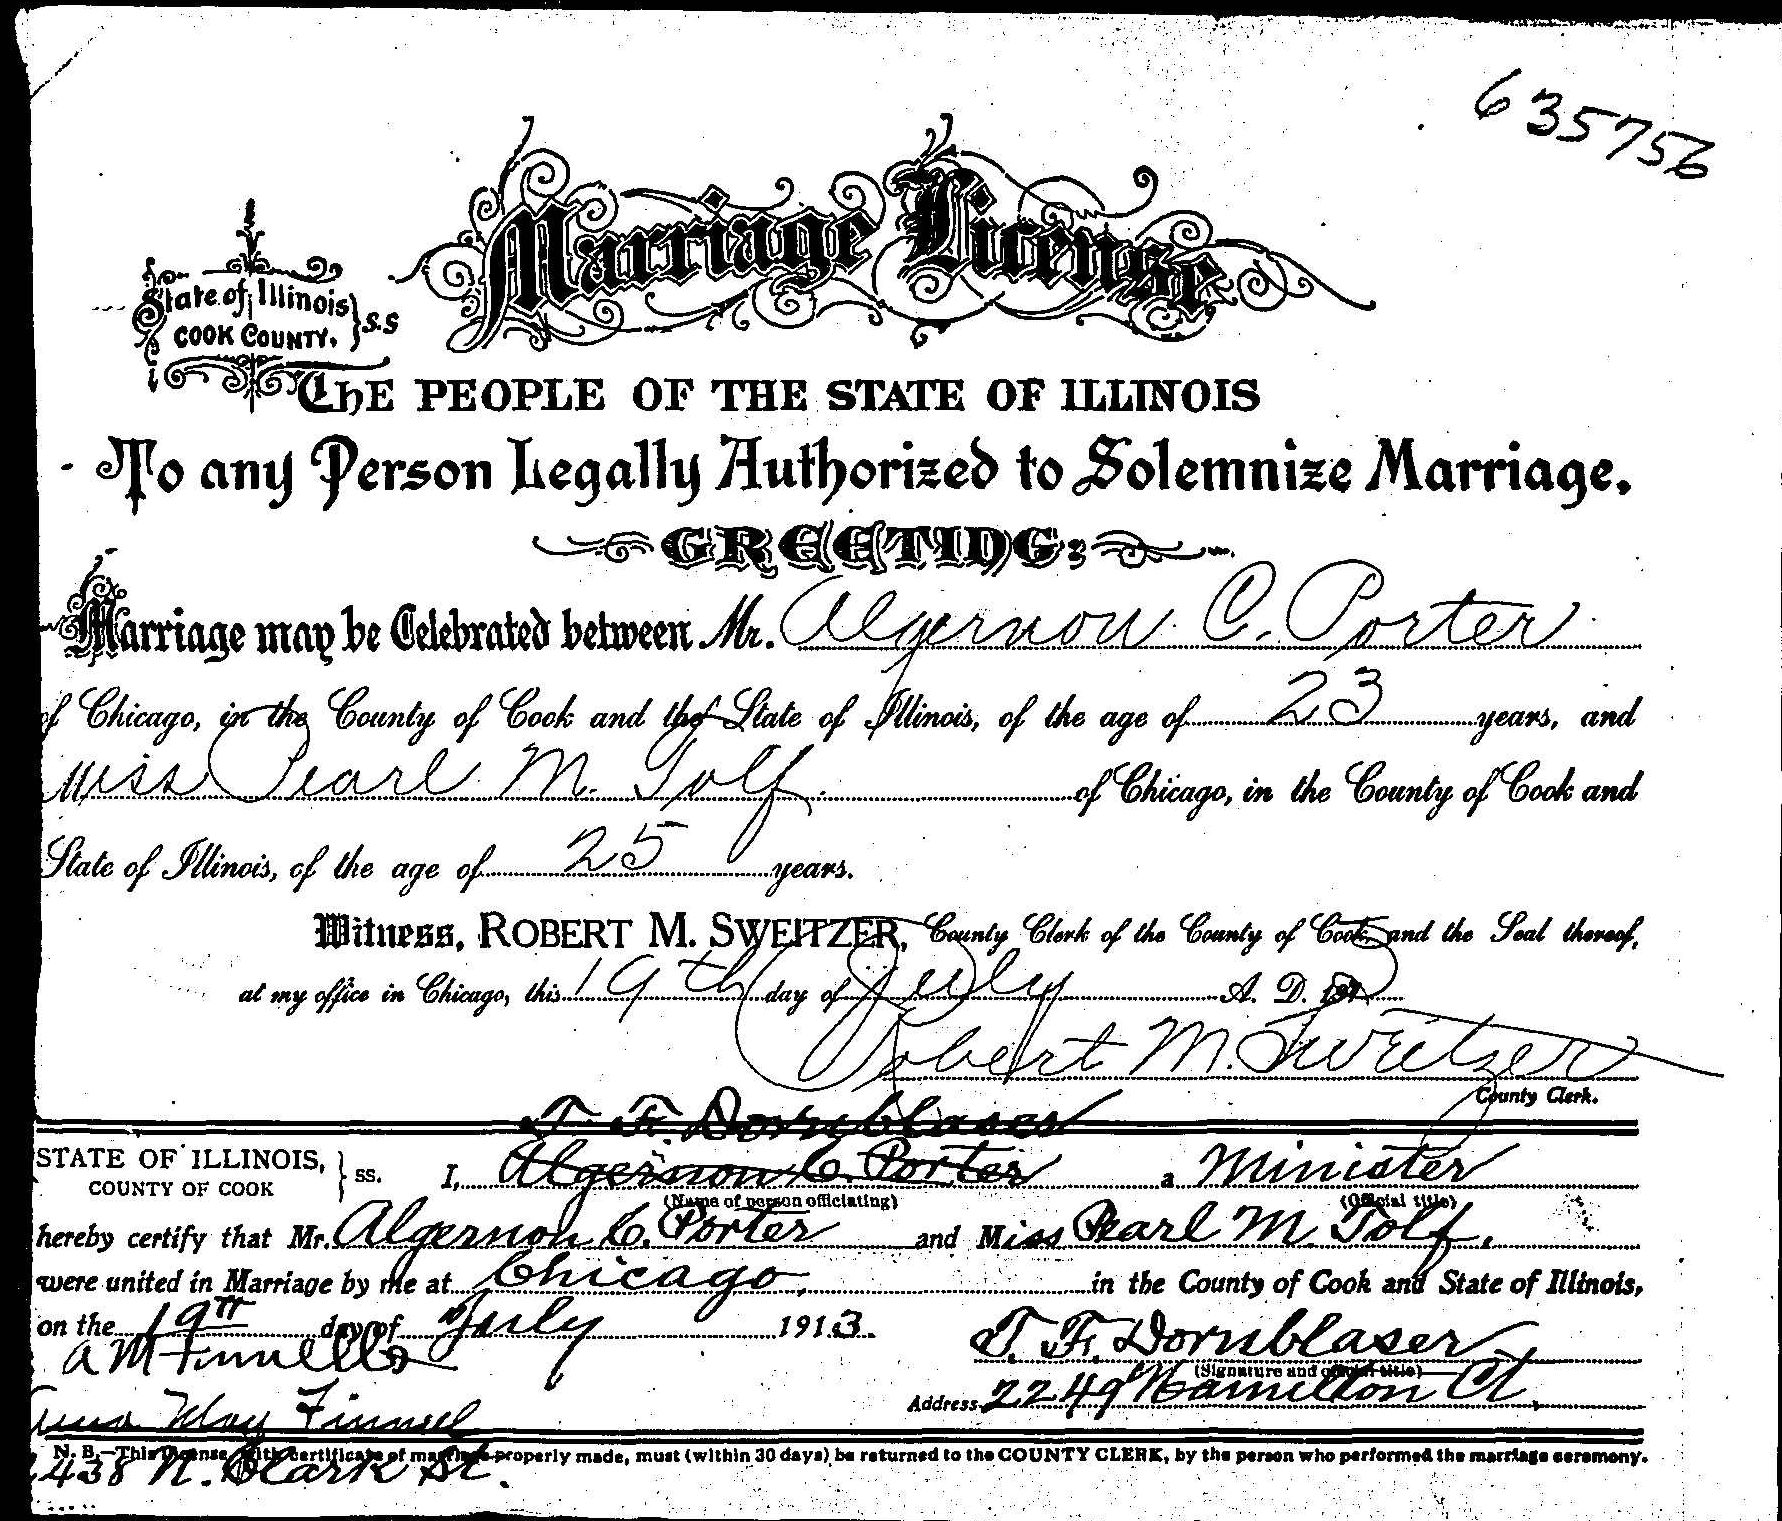 635756
Marriage License
State of Illinois } S.S
COOK COUNTY.
The PEOPLE OF THE STATE OF ILLINOIS
To any Person Legally Authorized to Solemnize Marriage.
GREETING:
Marriage may be Celebrated between Mr. Algernon C. Porter
of Chicago, in the County of Cook and the State of Illinois, of the age of 23 years, and
Miss Pearl M. Tolf of Chicago, in the County of Cook and
State of Illinois, of the age of 25 years.
Witness, ROBERT M. SWEITZER, County Clerk of the County of Cook and the Seal thereof,
at my office in Chicago, this 19th day of July A. D. 191
Robert M. Sweitzer
County Clerk.
T. F. Dornblaser
STATE OF ILLINOIS, } ss. I, Algernon C. Porter a Minister
COUNTY OF COOK
(Name of person officiating) (Official title)
hereby certify that Mr. Algernon C. Porter and Miss Pearl M. Tolf.
were united in Marriage by me at Chicago, in the County of Cook and State of Illinois,
on the 19th day of July 1913.
T. F. Dornblaser
A M Finnell
(Signature and official title)
Address 2249 Hamilton Ct.
May Finnell
N. B.—This License, with certificate of marriage properly made, must (within 30 days) be returned to the COUNTY CLERK, by the person who performed the marriage ceremony.
438 N. Clark St.